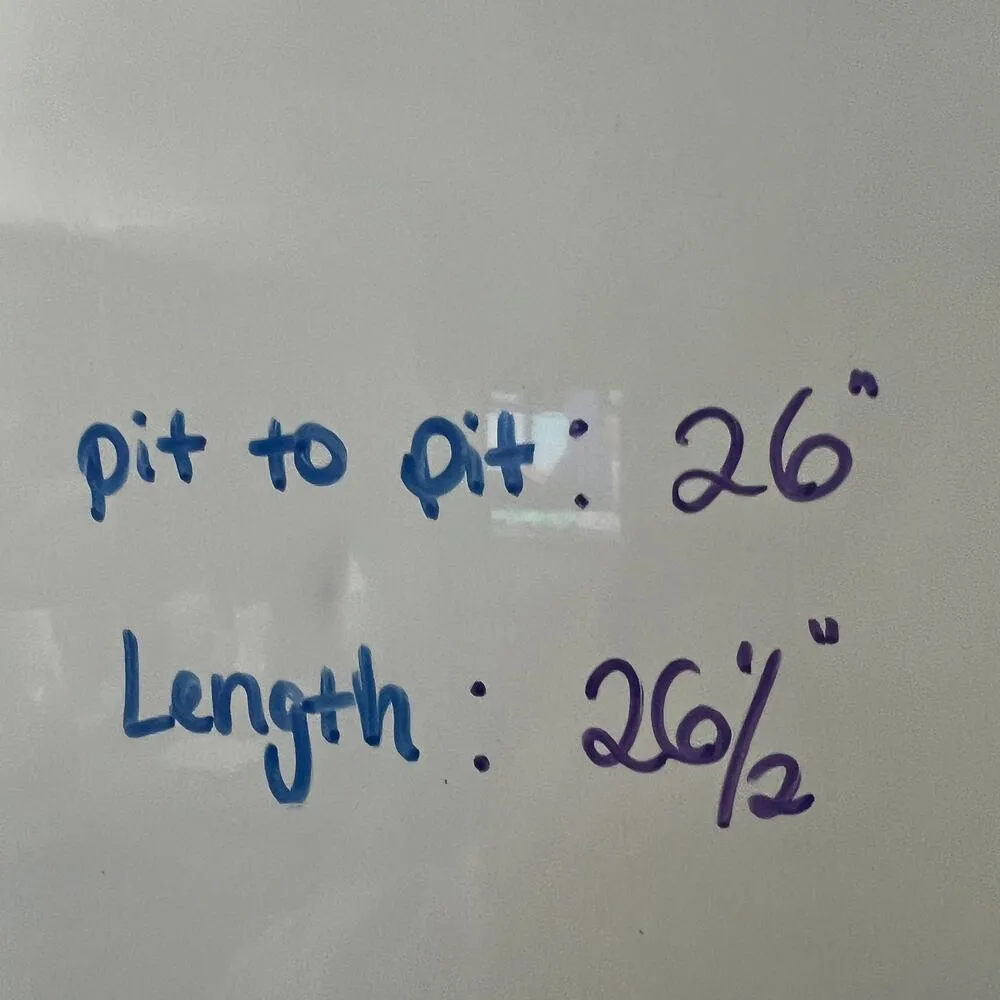 pit to pit: 26"
Length: 26 1/2"